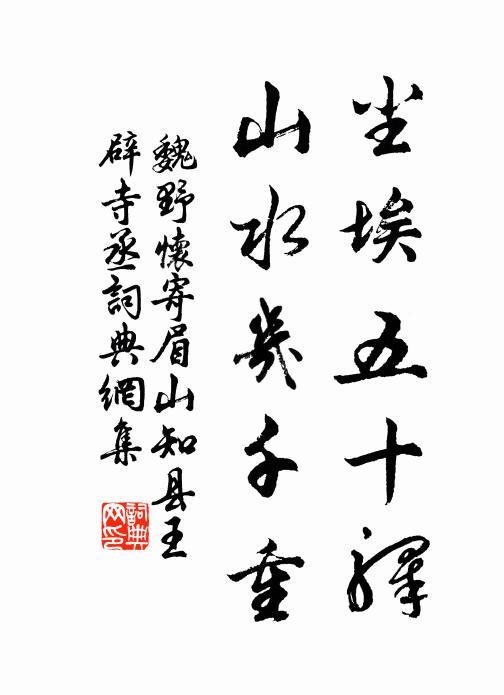 尘埃五十驿
山水幾千重
魏野懷寄眉山知县王
辟寺丞詞典網集
詞典
网印